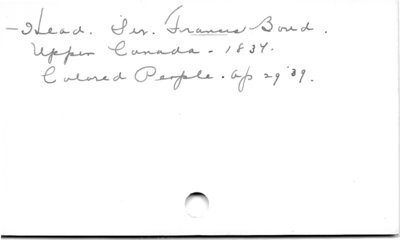 - Head. Sir. Francis Bond.
Upper Canada - 1837.
Colored People. Ap 29 '39.